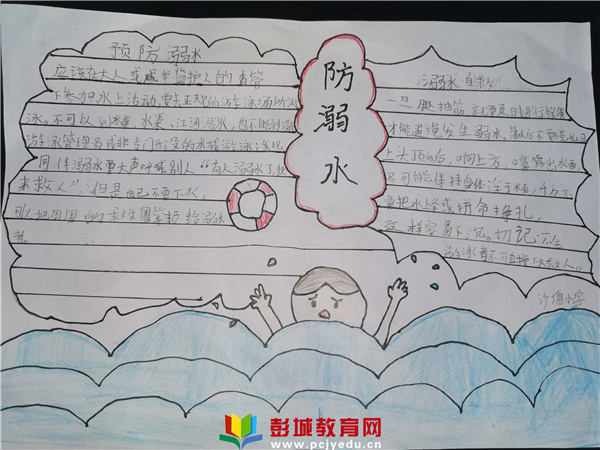 预防溺水
应该在大人或成年监护人的看管
下参加水上活动,要去正规的游泳场所游
泳。不可以到水库、水渠、江河游水,也不能到没
游泳管理员或非专门开设的水域游泳;发现
同伴溺水要大声呼喊别人“有人溺水了,快
来救人”,但是自己不要下水,
可以把周围的救生圈等扔给溺水
者
防
溺
水
溺水自救
才能避免发生溺水
上头顶向后,口向上方,口鼻露出水面
尽可能保持身体浮于水面,千万不
要把水上举或拼命挣扎,
这样容易下沉。切记不会
游泳者不可直接下水救人。
小学
彭城教育网
www.pcjyedu.cn